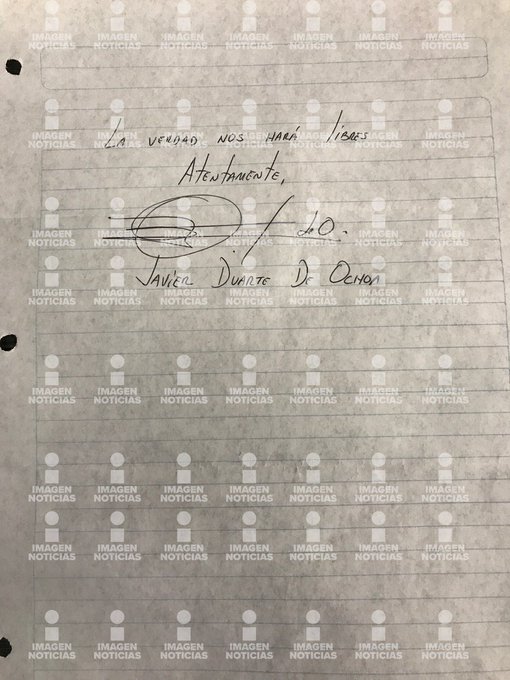 La verdad nos hará libres
Atentamente,
de O.
Javier Duarte De Ochoa
IMAGEN NOTICIAS